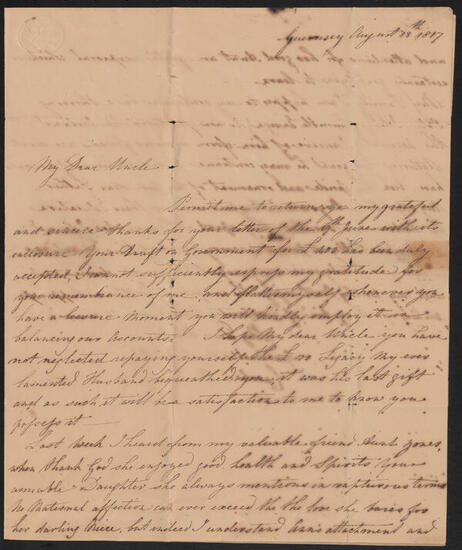 Guernsey August 28th 1817
My Dear Uncle
Permit me to return you my grateful
and sincere thanks for your letter of the 9th June with its
enclosure Your Draft on Government for £ has been duly
accepted, I cannot sufficiently express my gratitude for
your remembrance of me, and flatter myself whenever you
have a leisure moment you will kindly employ it in
balancing our accounts. I hope my dear Uncle you have
not neglected repaying yourself the £ Legacy my ever
lamented Husband bequeathed you, it was his last gift
and as such it will be a satisfaction to me to know you
possess it
Last Week I heard from my valuable friend Aunt Jones,
when thank God she enjoyed good health and Spirits Your
amiable Daughter she always mentions in rapturous terms
No Maternal affection can ever exceed the the love she bears for
her darling Niece, but indeed I understand Ann's attachment and